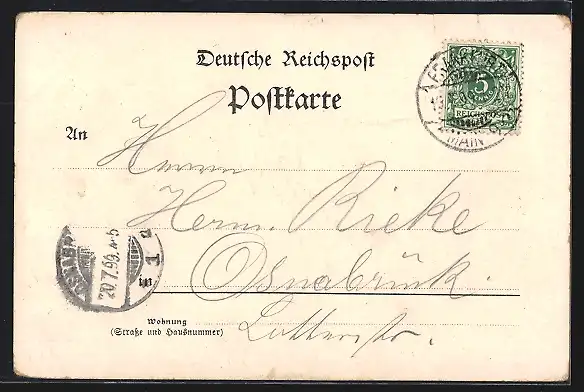 Deutsche Reichspost
Postkarte
5
REICHSPOST
MAIN
An
Herrn
Herm. Rieke
Osnabrück.
20.7.99.
1
Wohnung
(Straße und Hausnummer)
Lutterstr.